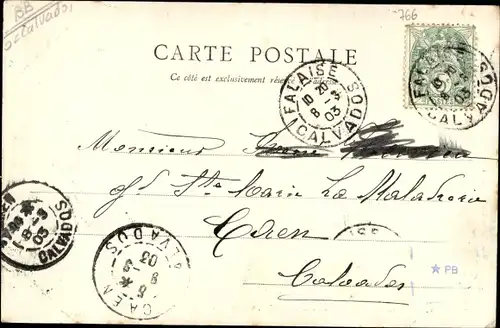 BB
Calvados
766
CARTE POSTALE
Ce côté est exclusivement réservé à l'adresse
FALAISE
10 20
8 -3
03
CALVADOS
FALAISE
10 20
8 -3
03
CALVADOS
Monsieur
St Marie La Maladrerie
Caen
Calvados
CAEN
8 -3
03
CALVADOS
CAEN
03
CALVADOS
PB